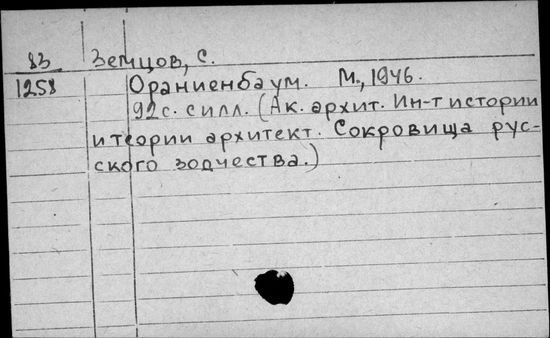 83 Земцов, С.
1258 Ораниенбаум. М., 1946.
92 с. с илл. (Ак. архит. Ин-т истории
и теории архитект. Сокровища рус-
ского зодчества.)